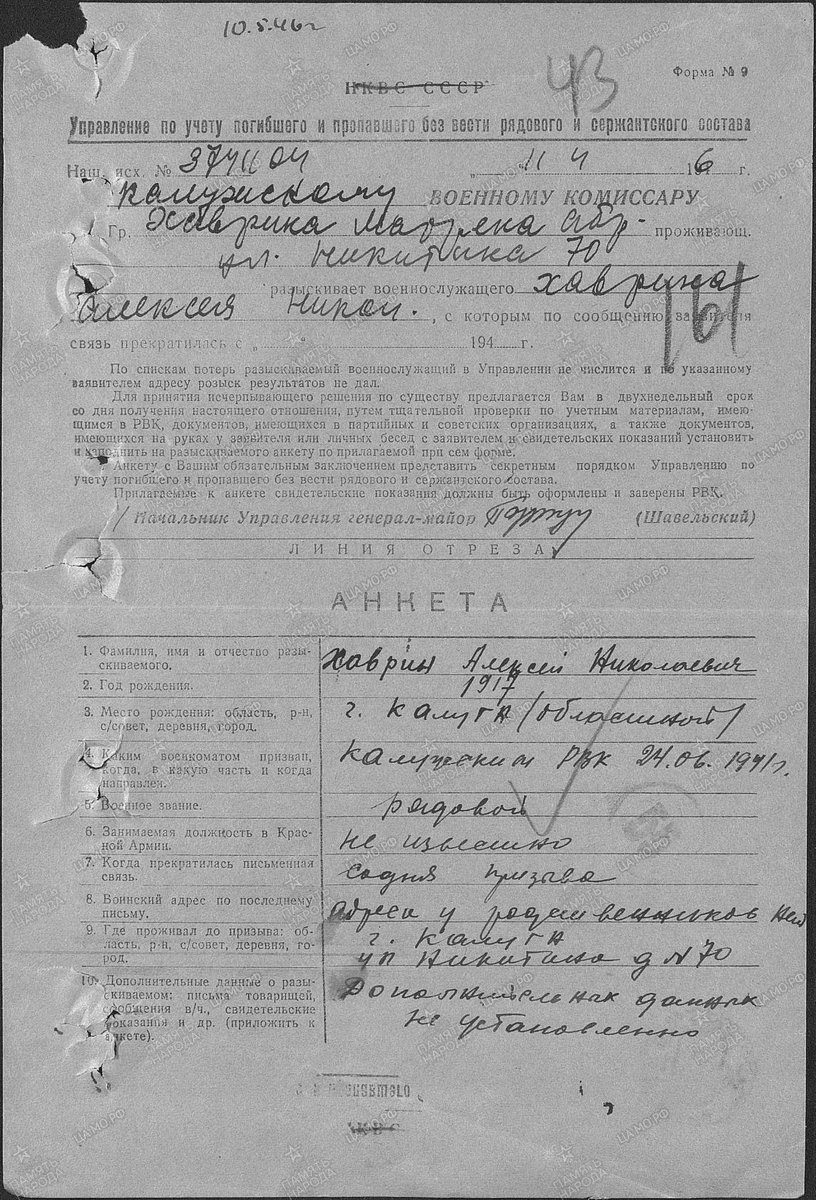 10.5.46 г
43
Форма № 9
НКВС СССР
Управление по учету погибшего и пропавшего без вести рядового и сержантского состава
Наш. исх. № „ 11 4 „ 1946 г.
Калужскому ВОЕННОМУ КОМИССАРУ
Гр. Хаврина Матрена Абр- проживающ.
ул. Никитина 70
разыскивает военнослужащего Хаврина
Алексея Никол. , с которым по сообщению заявителя
связь прекратилась с „ “ 194 г.
По спискам потерь разыскиваемый военнослужащий в Управлении не числится и по указанному
заявителем адресу розыск результатов не дал.
Для принятия исчерпывающего решения по существу предлагается Вам в двухнедельный срок
со дня получения настоящего отношения, путем тщательной проверки по учетным материалам, имею-
щимся в РВК, документов, имеющихся в партийных и советских организациях, а также документов,
имеющихся на руках у заявителя или личных бесед с заявителем и свидетельских показаний установить
и заполнить на разыскиваемого анкету по прилагаемой при сем форме.
Анкету с Вашим обязательным заключением представить секретным порядком Управлению по
учету погибшего и пропавшего без вести рядового и сержантского состава.
Прилагаемые к анкете свидетельские показания должны быть оформлены и заверены РВК.
Начальник Управления генерал-майор (Шавельский)
ЛИНИЯ ОТРЕЗА
АНКЕТА
1. Фамилия, имя и отчество разы-
скиваемого.
Хаврин Алексей Николаевич
2. Год рождения.
1917
3. Место рождения: область, р-н,
с/совет, деревня, город.
г. Калуга (областной)
4. Каким военкоматом призван,
когда, в какую часть и когда
направлен.
Калужским РВК 24.06.1941г.
5. Военное звание.
рядовой
6. Занимаемая должность в Крас-
ной Армии.
не известно
7. Когда прекратилась письменная
связь.
Содня призыва
8. Воинский адрес по последнему
письму.
Адреса у родственников нет
9. Где проживал до призыва: об-
ласть, р-н, с/совет, деревня, го-
род.
г. Калуга
ул Никитина д N 70
10. Дополнительные данные о разы-
скиваемом: письма товарищей,
сообщения в/ч., свидетельские
показания и др. (приложить к
анкете).
Дополнительных данных
не установленно